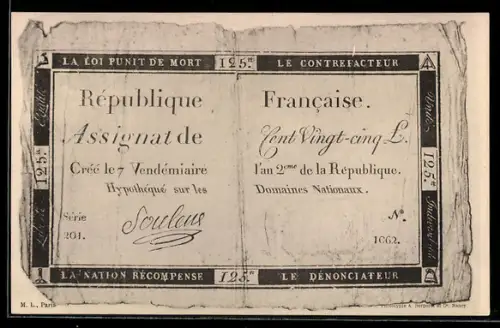 LA LOI PUNIT DE MORT 125.ᴴ LE CONTREFACTEUR
République Française.
Assignat de Cent Vingt-cinq L.
Créé le 7 Vendémiaire l'an 2ème de la République.
Hypothéqué sur les Domaines Nationaux.
Série Nº.
201. 1062.
125.ᴴ
125.ᴴ
LA NATION RÉCOMPENSE 125.ᴴ LE DÉNONCIATEUR
M. L., Paris